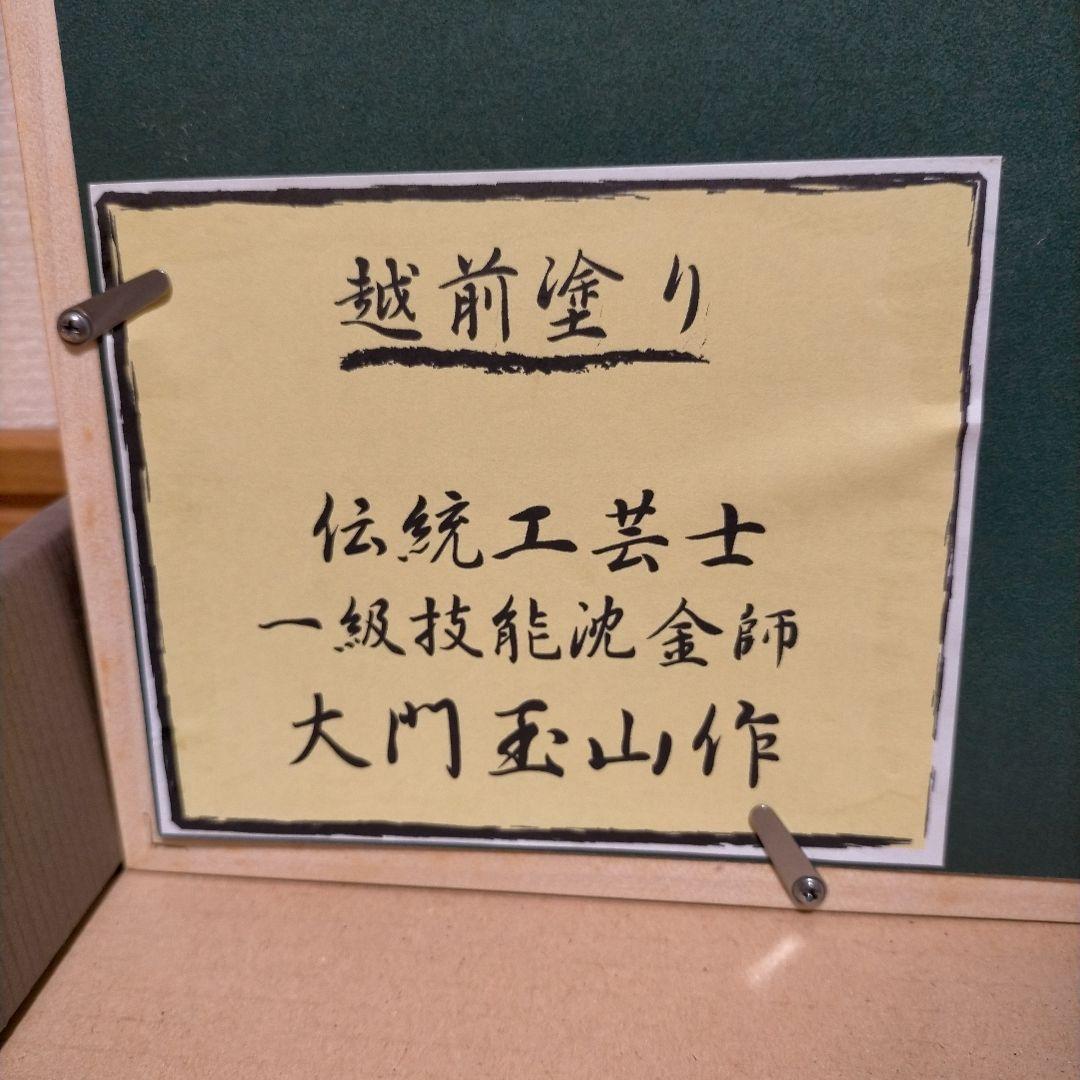 越前塗り
伝統工芸士
一級技能沈金師
大門玉山作